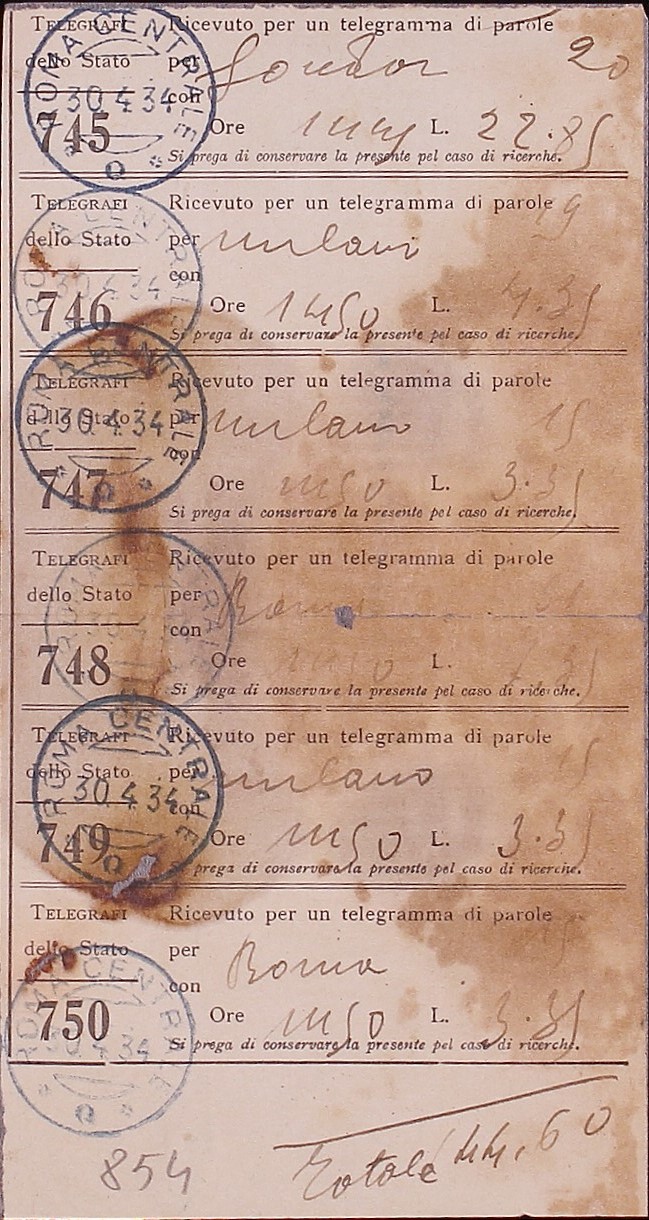 TELEGRAFI Ricevuto per un telegramma di parole 20
dello Stato per
con
745 Ore L. 22.85
Si prega di conservare la presente pel caso di ricerche.
ROMA CENTRALE
30 4 34
TELEGRAFI Ricevuto per un telegramma di parole 19
dello Stato per milano
con
746 Ore 1450 L.
Si prega di conservare la presente pel caso di ricerche.
ROMA CENTRALE
30 4 34
TELEGRAFI Ricevuto per un telegramma di parole 15
dello Stato per milano
con
747 Ore L. 3.35
Si prega di conservare la presente pel caso di ricerche.
ROMA CENTRALE
30 4 34
TELEGRAFI Ricevuto per un telegramma di parole
dello Stato per Roma
con
748 Ore L.
Si prega di conservare la presente pel caso di ricerche.
ROMA CENTRALE
TELEGRAFI Ricevuto per un telegramma di parole 15
dello Stato per milano
con
749 Ore L. 3.35
Si prega di conservare la presente pel caso di ricerche.
ROMA CENTRALE
30 4 34
TELEGRAFI Ricevuto per un telegramma di parole
dello Stato per Roma
con
750 Ore L. 3.35
Si prega di conservare la presente pel caso di ricerche.
ROMA CENTRALE
30 4 34
Totale 44.60
854